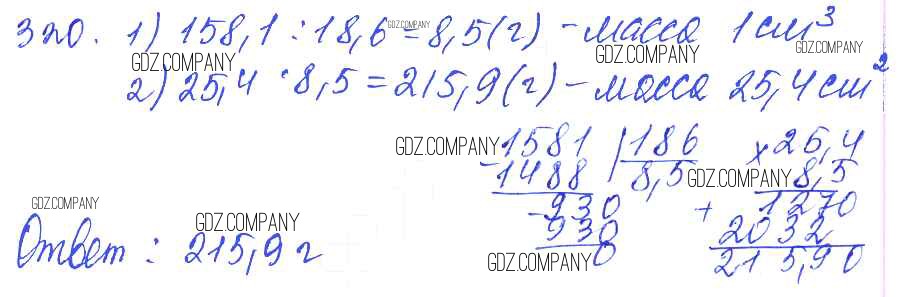 320. 1) 158,1 : 18,6 = 8,5 (г) – масса 1 см³
GDZ.COMPANY GDZ.COMPANY GDZ.COMPANY GDZ.COMPANY
2) 25,4 · 8,5 = 215,9 (г) – масса 25,4 см²
GDZ.COMPANY
-1581 | 186
1488 8,5
-930
930
0
× 25,4
8,5
GDZ.COMPANY
+ 1270
2032
215,90
GDZ.COMPANY
GDZ.COMPANY
Ответ : 215,9 г
GDZ.COMPANY